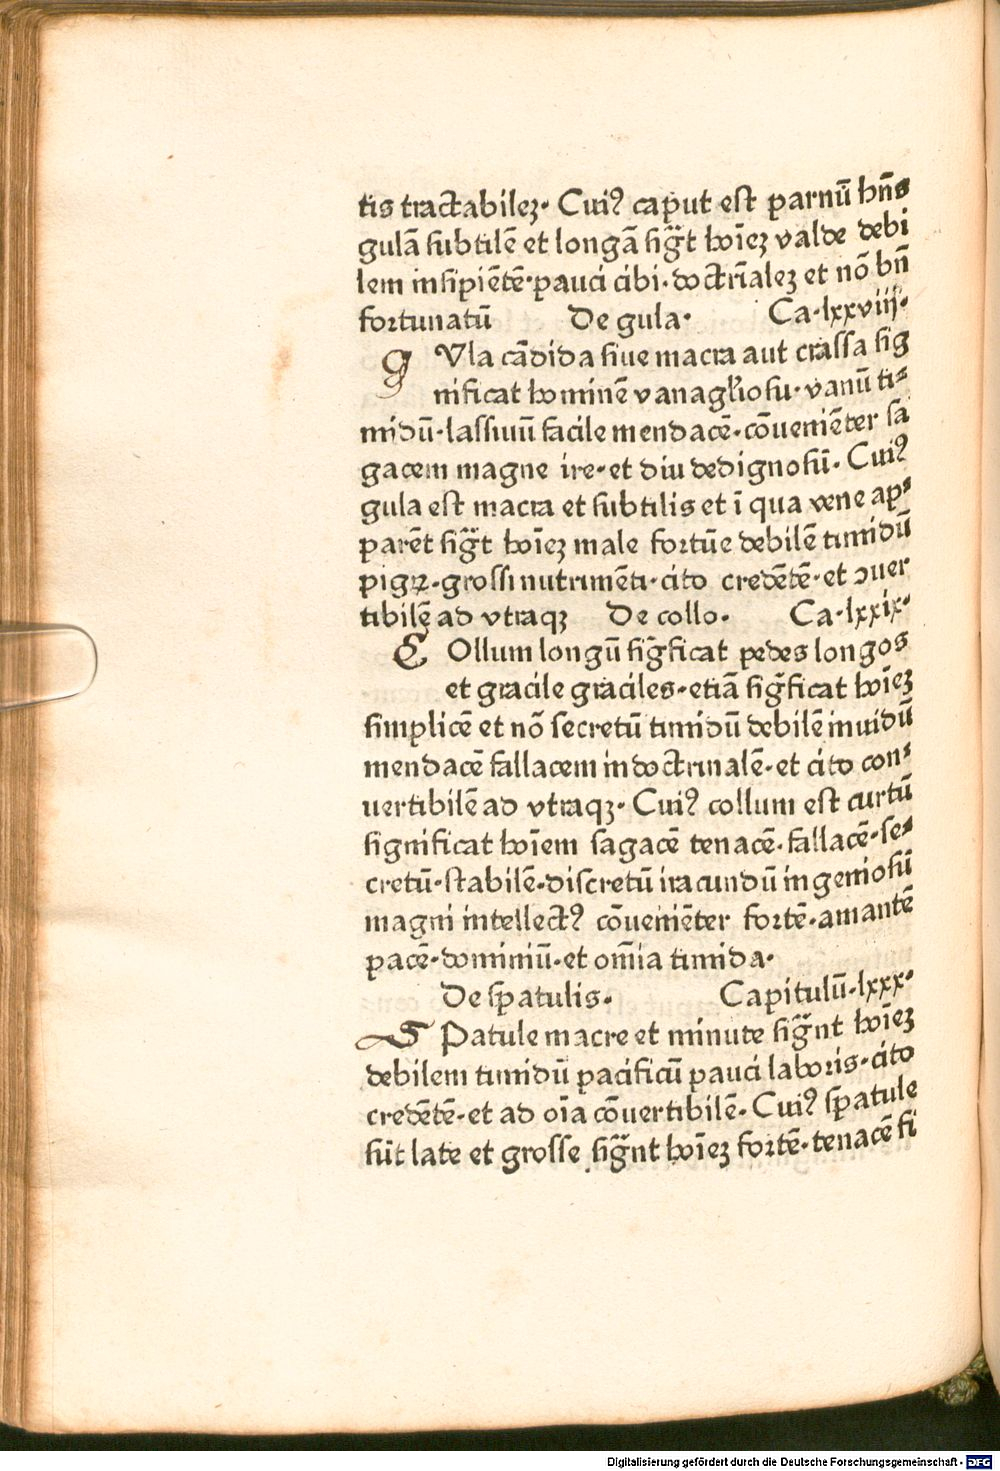 tis tractabileꝫ· Cuiꝰ caput est parnū hn̄s
gulā subtilē et longā sigͣt hoīeꝫ valde debi
lem insipiētē·pauci cibi·doctrīaleꝫ et nō bn̄
fortunatū De gula· Ca·lxxviij·
g Vla cādida siue macra aut crassa sig
nificat hominē vanagl̄iosu·vanū ti⸗
midū·lassiuū facile mendacē·cōueniēter sa
gacem magne ire·et diu dedignosū· Cuiꝰ
gula est macra et subtilis et ī qua vene ap⸗
parēt sigͣt hoīeꝫ male fortūe debilē timidū
pigꝝ·grossi nutrimēti·cito credētē·et ↄuer
tibilē ad vtraqꝫ De collo· Ca·lxxix·
C Ollum longū sigͣficat pedes longos
et gracile graciles·etiā sigͣficat hoīeꝫ
simplicē et nō secretū timidū debilē inuidū
mendacē fallacem indoctrinalē·et cito con⸗
uertibilē ad vtraqꝫ· Cuiꝰ collum est curtū
significat hoīem sagacē tenacē·fallacē·se⸗
cretū·stabilē·discretū iracundū ingeniosū
magni intellectꝰ cōueniēter fortē·amantē
pacē·dominiū·et om̄ia timida·
De spatulis· Capitulū·lxxx·
S Patule macre et minute sigͣnt hoīeꝫ
debilem timidū pacificū pauci laboris·cito
credētē·et ad oīa cōuertibilē· Cuiꝰ spatule
sūt late et grosse sigͣnt hoīeꝫ fortē·tenacē fi
Digitalisierung gefördert durch die Deutsche Forschungsgemeinschaft - DFG